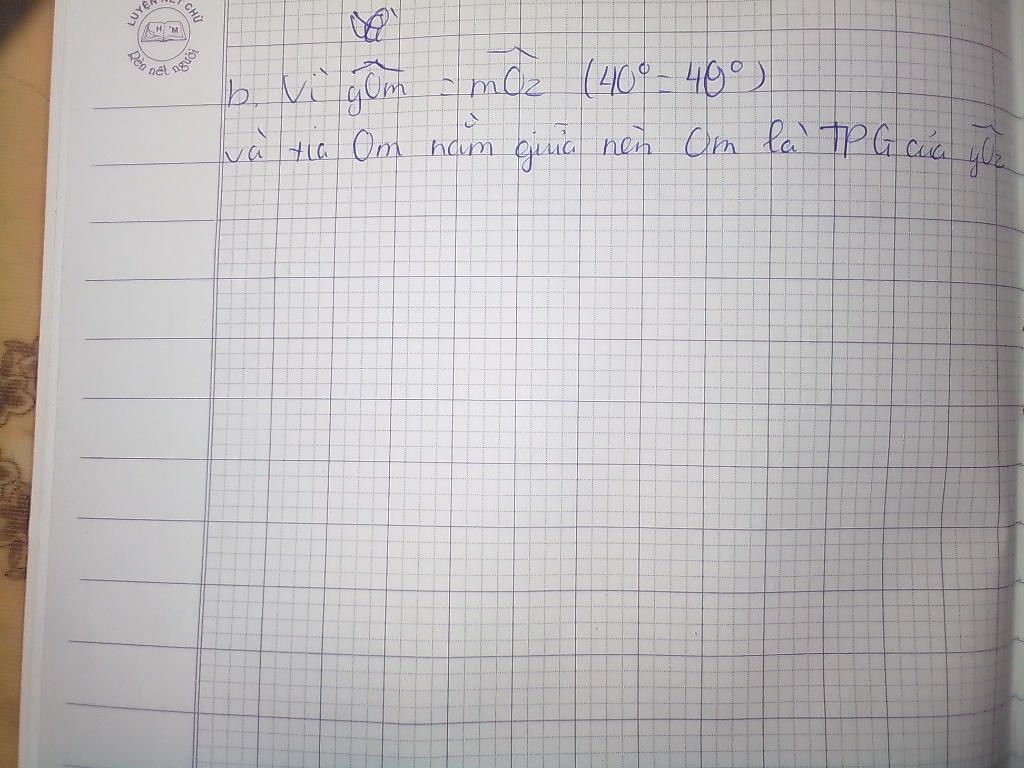 LUYỆN NÉT CHỮ
H M
Rèn nết người
b. Vì yOm = mOz (40° = 40°)
và tia Om nằm giữa nên Om là TPG của yOz